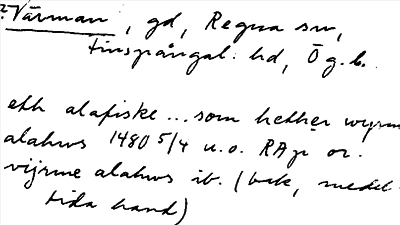 ? Värman, gd, Regna sn,
Finspångal. hd, Ög. l.
eth alafiske ... som hether wyrm
alahws 1480 5/4 u.o. RAp or.
vijrme alahws ib. (bak, medel-
tida hand)